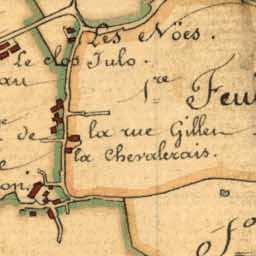 Les Nöes.
Le clos Julo.
au
1.re Feui
de la rue Gillen
la chevalerais.
on.